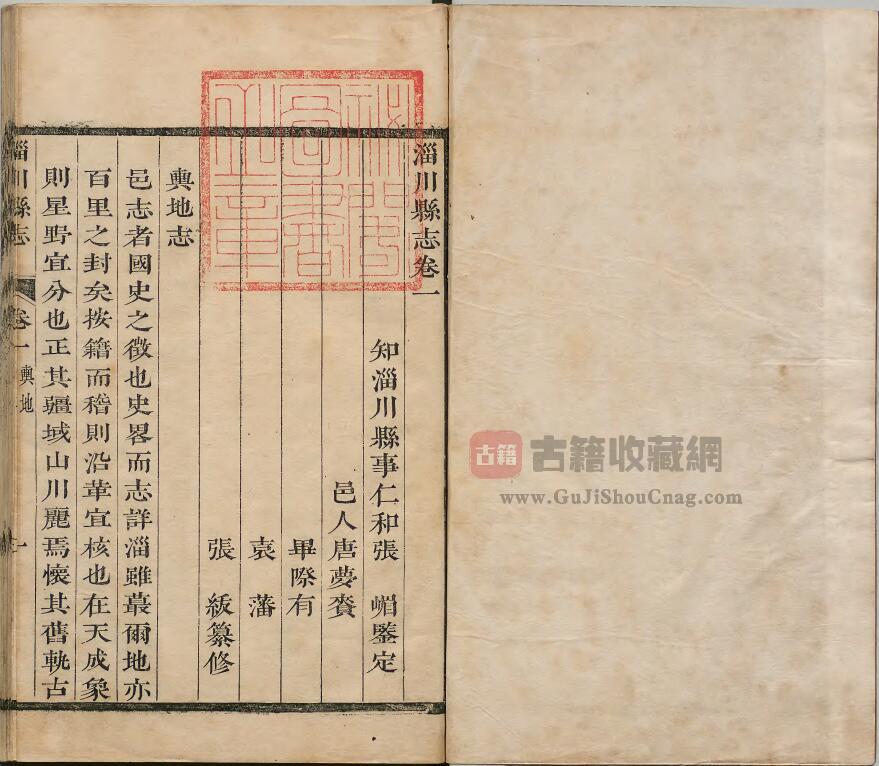 淄川縣志卷一
知淄川縣事仁和張　嵋鑒定
邑人唐夢賚
畢際有
袁　藩
張　紱纂修
輿地志
邑志者國史之徵也史畧而志詳淄雖蕞爾地亦
百里之封矣按籍而稽則沿革宜核也在天成象
則星野宜分也正其疆域山川麗焉懷其舊軌古
淄川縣志　卷一　輿地　一
古籍 古籍收藏網
www.GuJiShouCnag.com